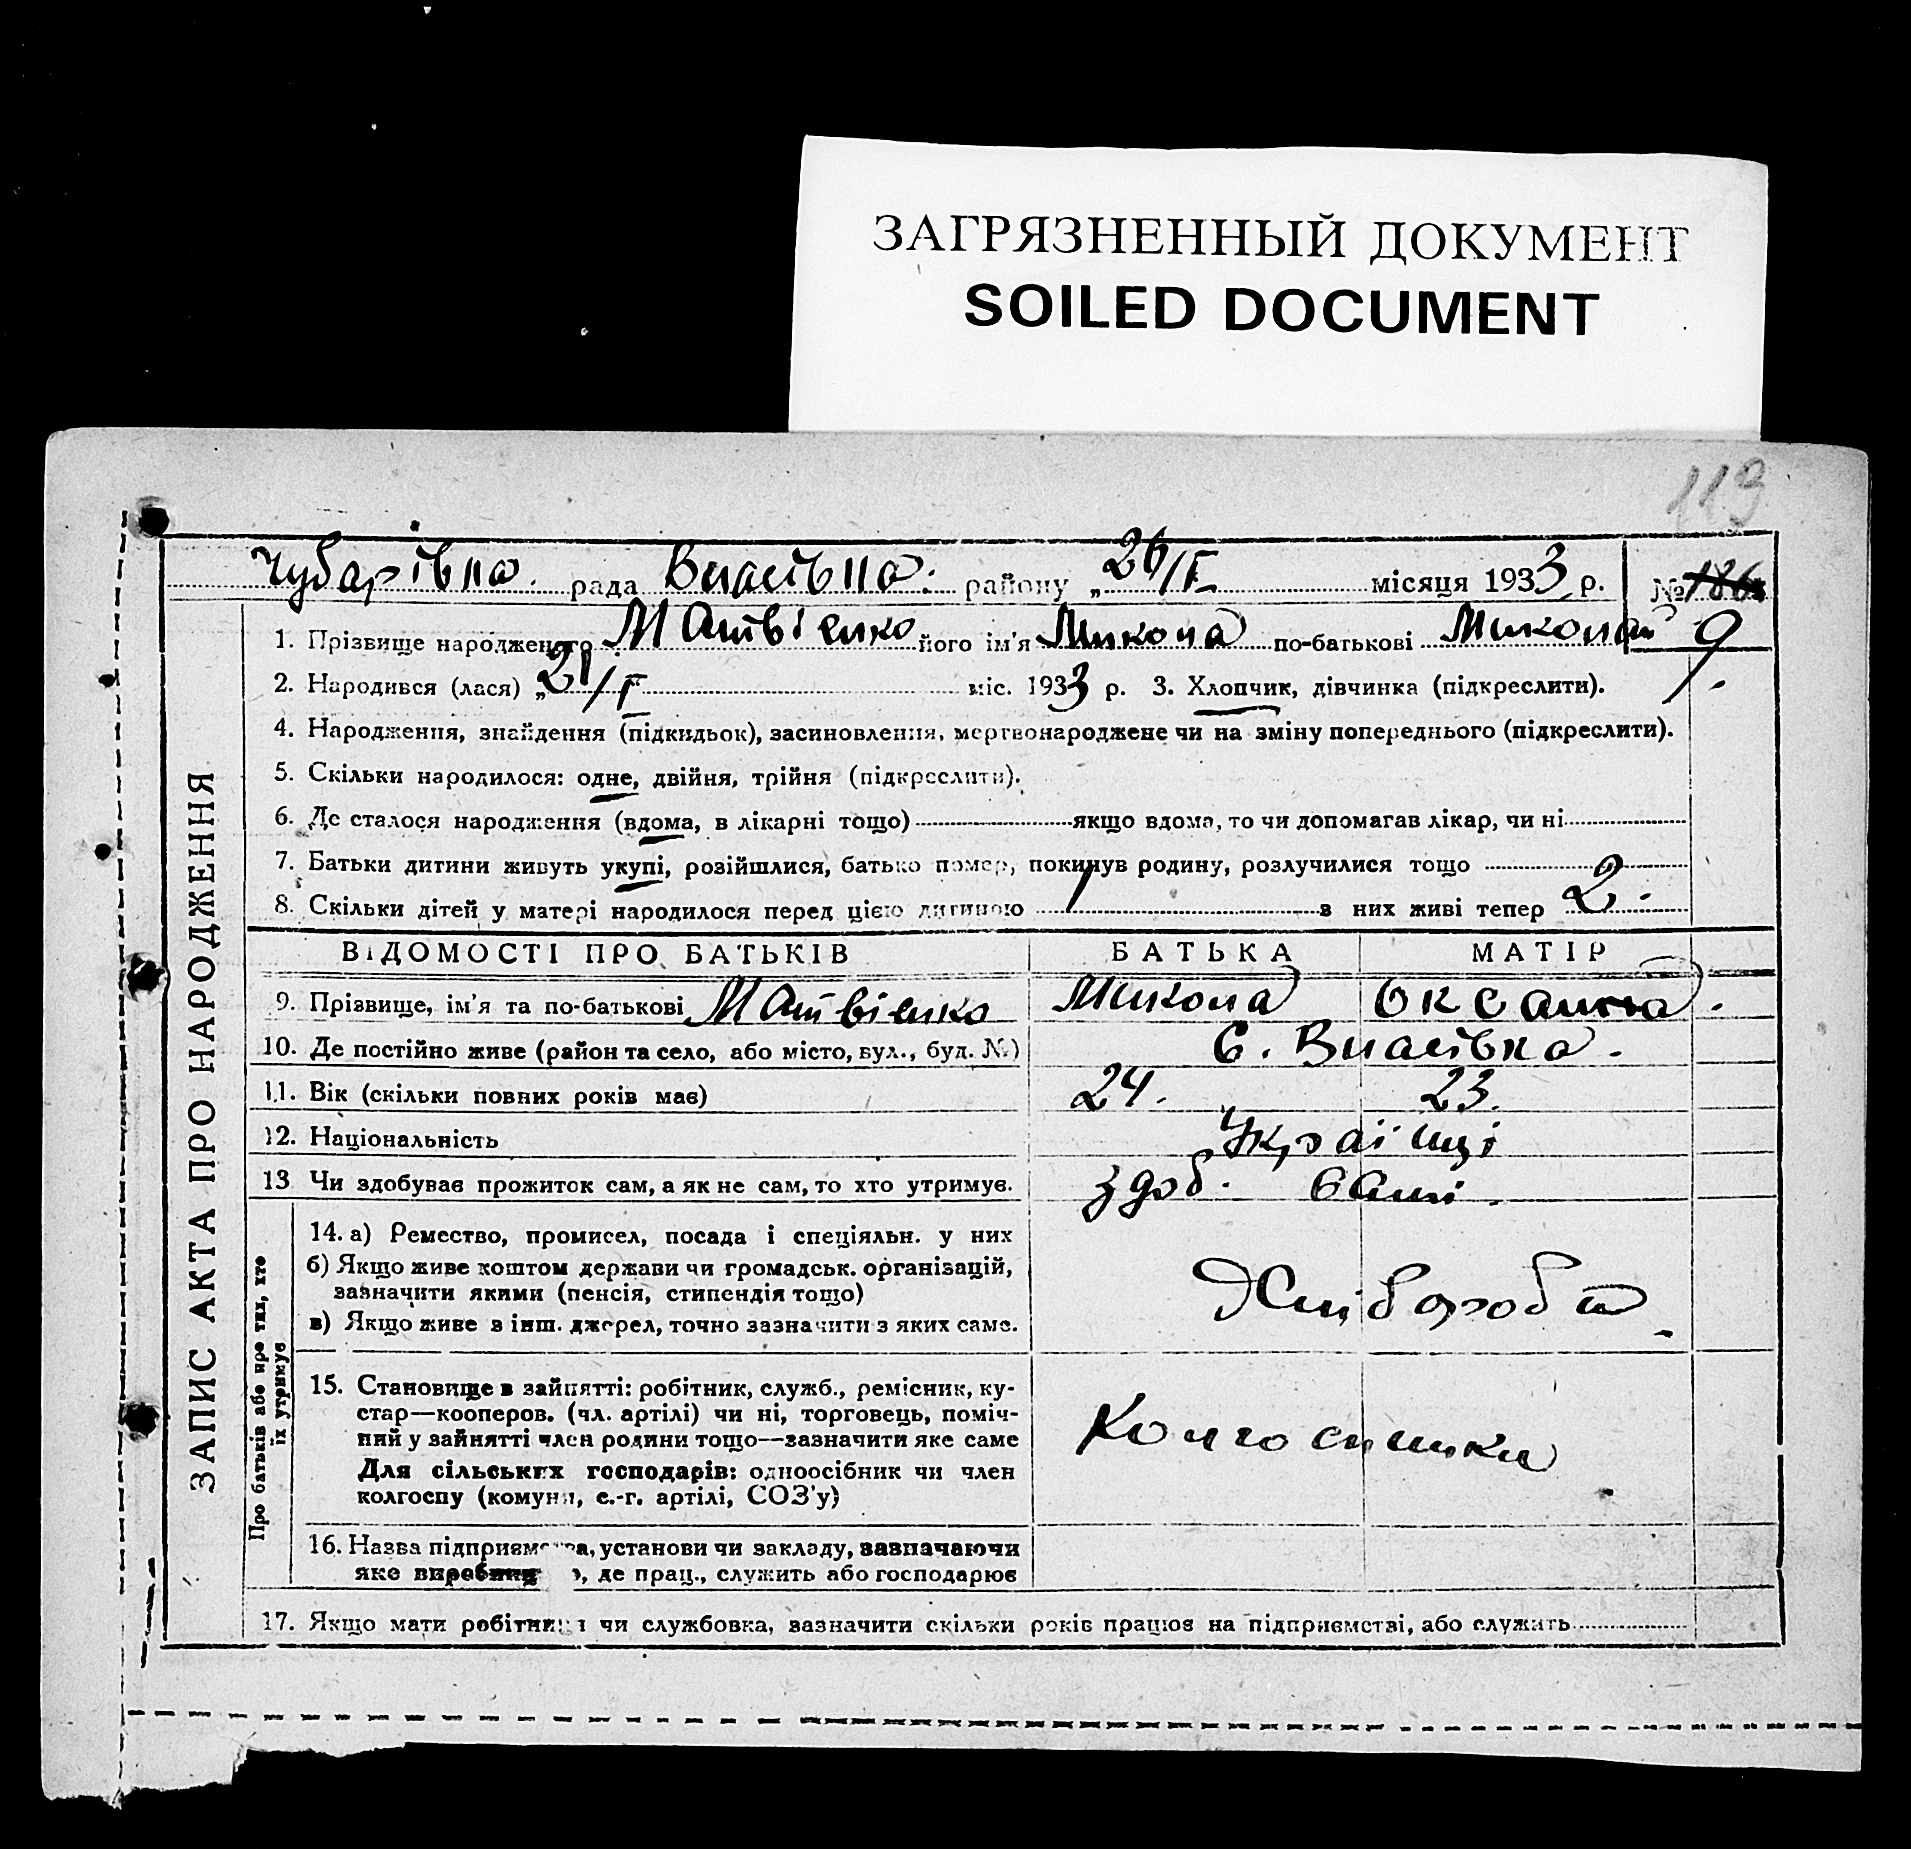 ЗАГРЯЗНЕННЫЙ ДОКУМЕНТ
SOILED DOCUMENT
113
Чубарівка рада Власівка району „26/I місяця 1933 р. № 186
9
1. Прізвище народженого Матвієнко його ім'я Микола по-батькові Микола
2. Народився (лася) „21/I міс. 1933 р. 3. Хлопчик, дівчинка (підкреслити).
4. Народження, знайдення (підкидьок), засиновлення, мертвонароджене чи на зміну попереднього (підкреслити).
5. Скільки народилося: одне, двійня, трійня (підкреслити).
6. Де сталося народження (вдома, в лікарні тощо) якщо вдома, то чи допомагав лікар, чи ні
7. Батьки дитини живуть укупі, розійшлися, батько помер, покинув родину, розлучилися тощо
8. Скільки дітей у матері народилося перед цією дитиною 1 з них живі тепер 2.
ВІДОМОСТІ ПРО БАТЬКІВ БАТЬКА МАТІР
9. Прізвище, ім'я та по-батькові Матвієнко Микола Оксана.
10. Де постійно живе (район та село, або місто, вул., буд. №) с. Власівка.
11. Вік (скільки повних років має) 24. 23.
12. Національність Українці
13 Чи здобував прожиток сам, а як не сам, то хто утримує. здоб. самі.
14. а) Ремество, промисел, посада і спеціяльн. у них
б) Якщо живе коштом держави чи громадськ. організацій,
зазначити якими (пенсія, стипендія тощо)
в) Якщо живе з інш. джерел, точно зазначити з яких саме.
Хлібороби
15. Становище в зайнятті: робітник, служб., ремісник, ку-
стар—кооперов. (чл. артілі) чи ні, торговець, поміч-
ний у зайнятті член родини тощо—зазначити яке саме
Для сільських господарів: одноосібник чи член
колгоспу (комуни, с.-г. артілі, СОЗ'у)
Колгоспники
16. Назва підприємства, установи чи закладу, зазначаючи
яке , де прац., служить або господарює
17. Якщо мати робітниця чи службовка, зазначити скільки років працює на підприємстві, або служить
ЗАПИС АКТА ПРО НАРОДЖЕННЯ
Про батьків або про тих, хто
їх утримує